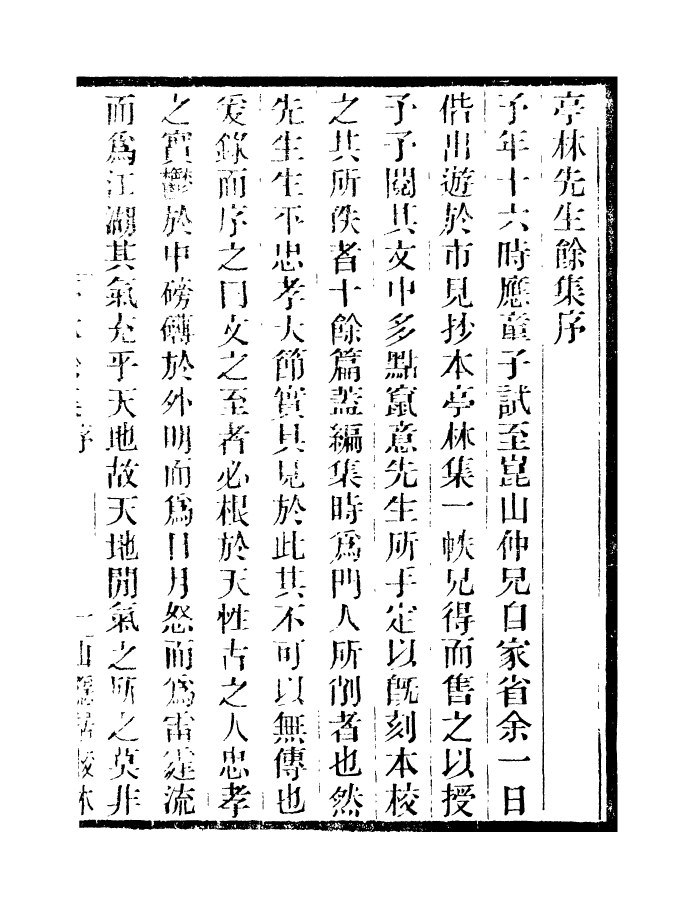 亭林先生餘集序
予年十六時應童子試至崑山仲兄自家省余一日
偕出遊於市見抄本亭林集一帙兄得而售之以授
予予閱其文中多點竄意先生所手定以旣刻本校
之其所佚者十餘篇蓋編集時爲門人所削者也然
先生生平忠孝大節實具見於此其不可以無傳也
爰錄而序之曰文之至者必根於天性古之人忠孝
之實鬱於中磅礴於外明而爲日月怒而爲雷霆流
而爲江湖其氣充乎天地故天地閒氣之所之莫非
集序 一 山 居校本